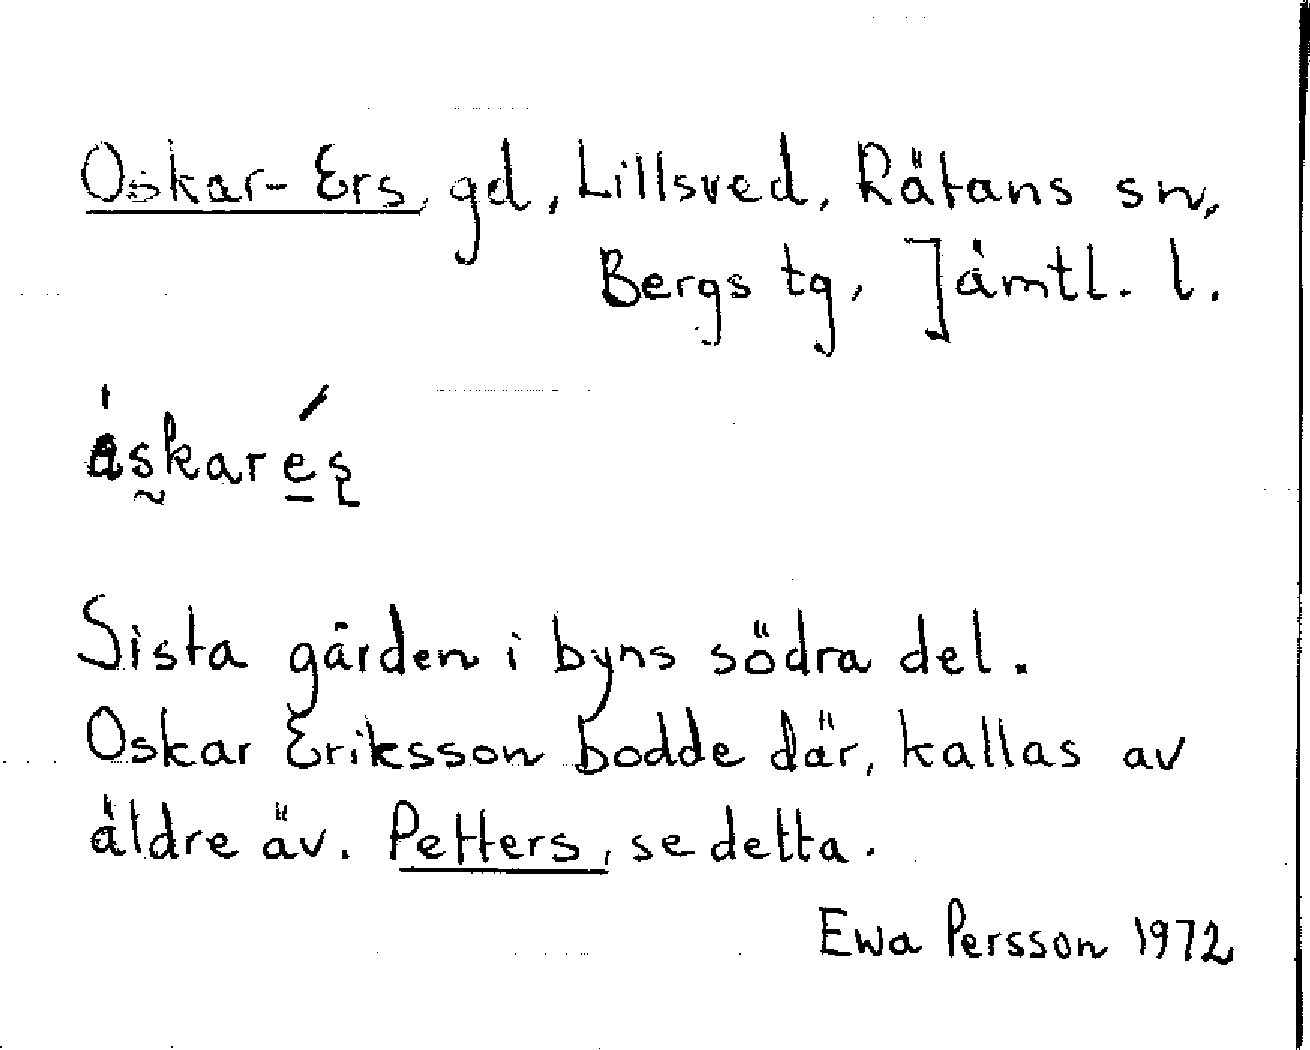 Oskar-Ers, gd, Lillsved, Rätans sn,
Bergs tg, Jämtl. l.
åskarés
Sista gården i byns södra del.
Oskar Eriksson bodde där, kallas av
äldre äv. Petters, se detta.
Ewa Persson 1972